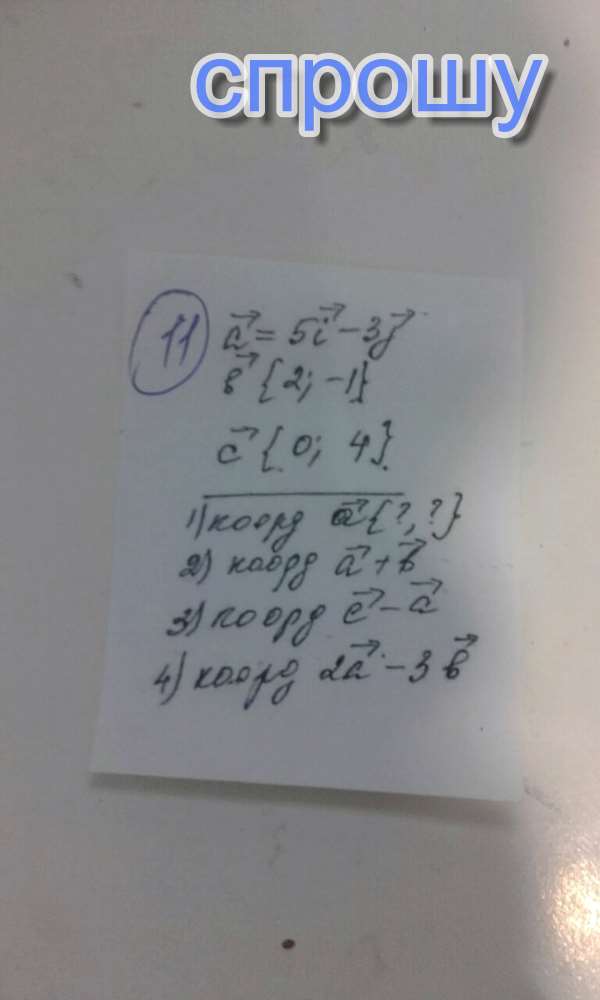 спрошу
11
a⃗ = 5i⃗ - 3j⃗
в⃗ {2; -1}
c⃗ {0; 4}
1) коорд a⃗ {?, ?}
2) коорд a⃗ + в⃗
3) коорд c⃗ - a⃗
4) коорд 2a⃗ - 3в⃗